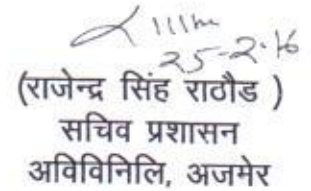 25-2-16
(राजेन्द्र सिंह राठौड )
सचिव प्रशासन
अविविनिलि, अजमेर